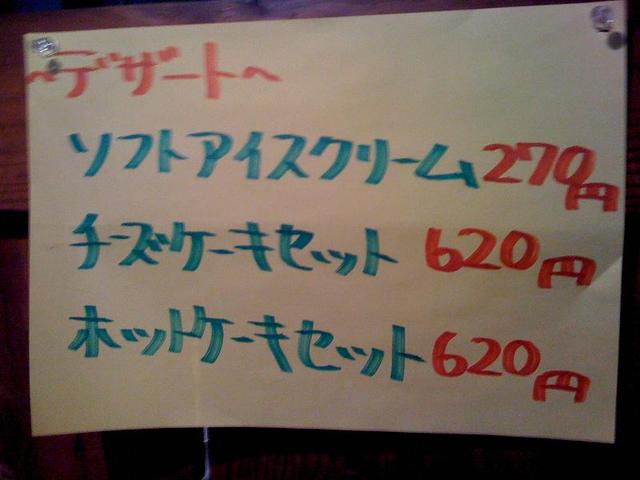 ~デザート~
ソフトアイスクリーム270円
チーズケーキセット 620円
ホットケーキセット620円